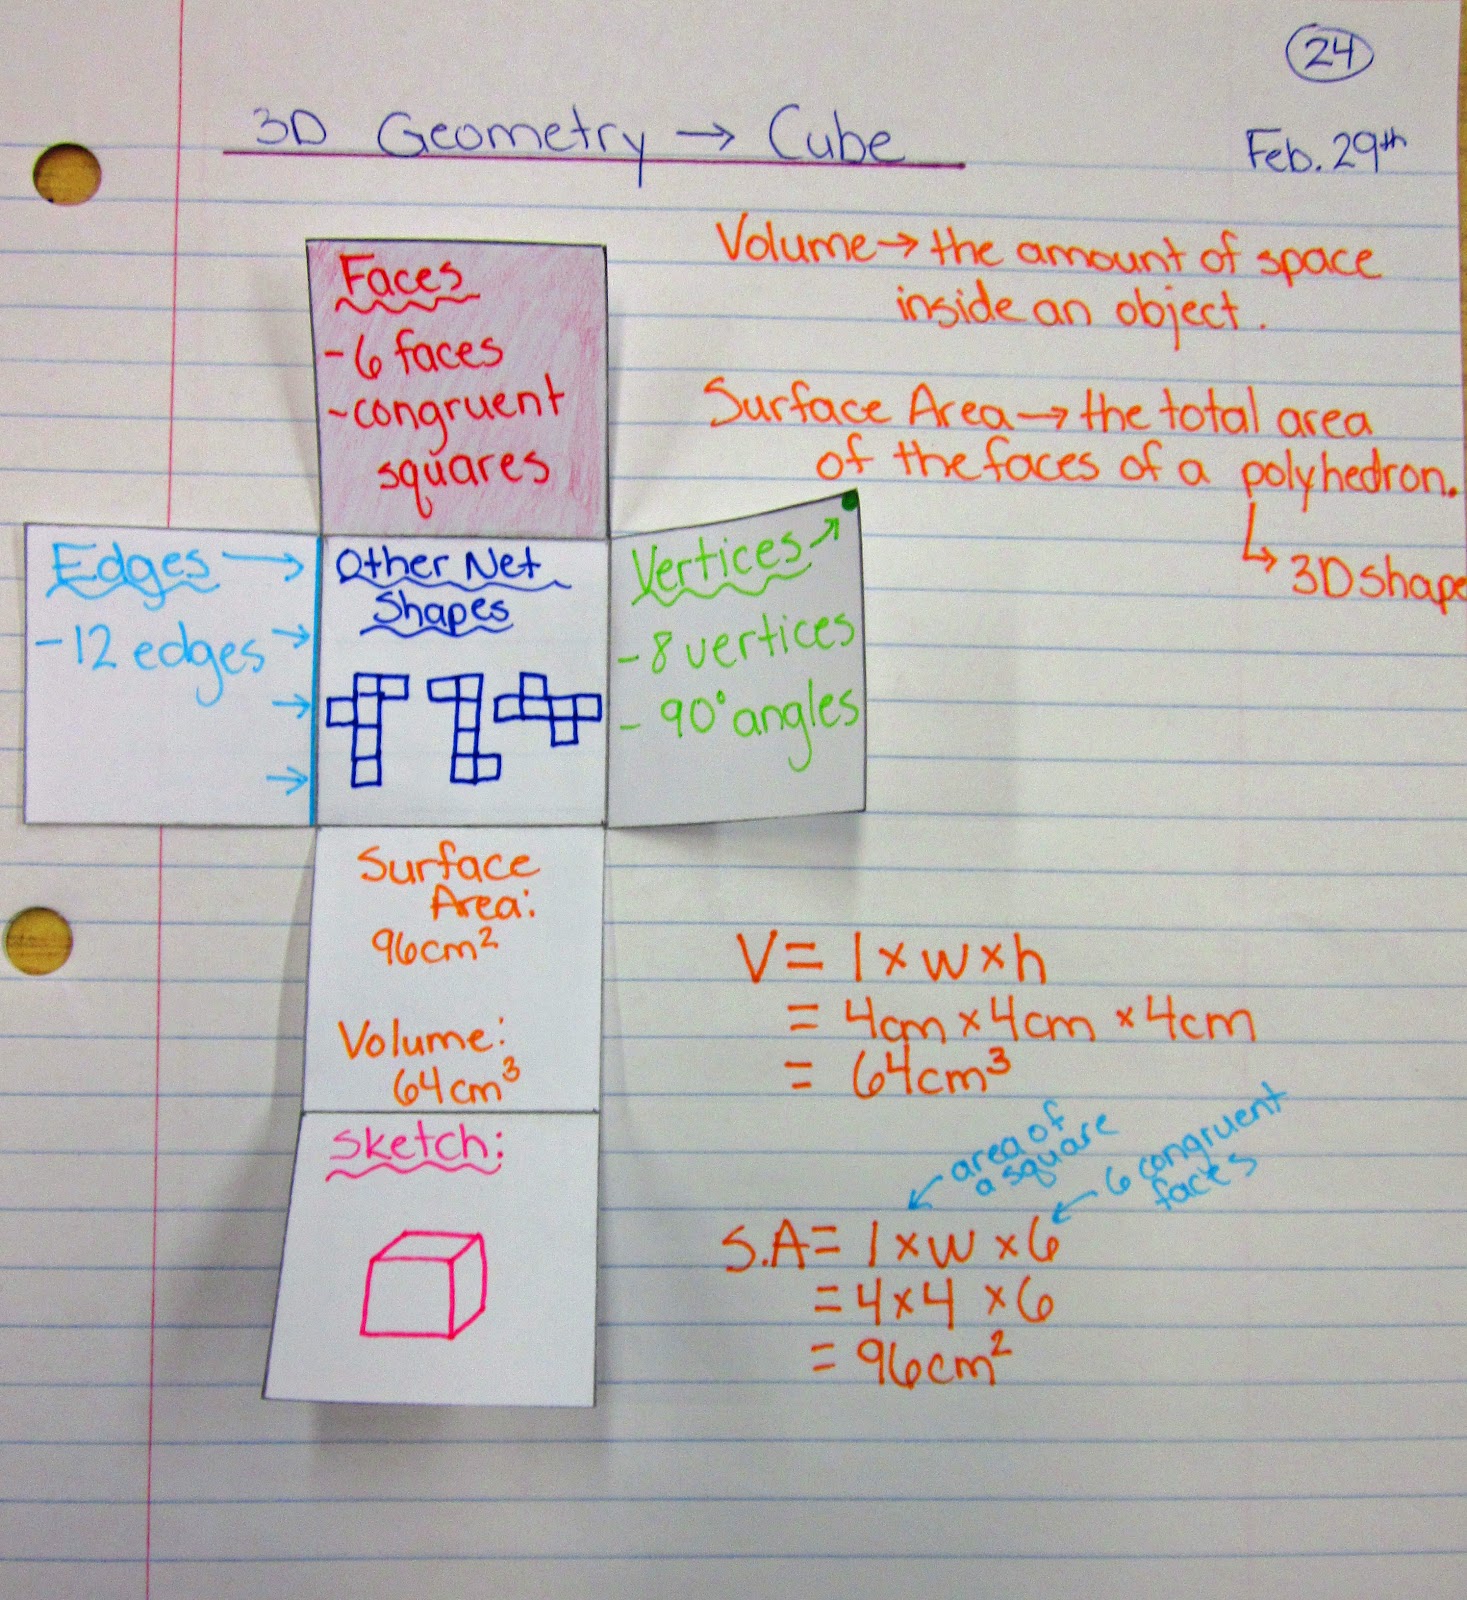 24
3D Geometry → Cube
Feb. 29th
Volume → the amount of space
inside an object.
Surface Area → the total area
of the faces of a polyhedron.
↳ 3D shape
Faces
- 6 faces
- congruent
squares
Edges →
- 12 edges
Other Net
Shapes
Vertices
- 8 vertices
- 90° angles
Surface
Area:
96cm²
Volume:
64cm³
Sketch:
V = l × w × h
= 4cm × 4cm × 4cm
= 64cm³
area of
a square
6 congruent
faces
S.A = l × w × 6
= 4 × 4 × 6
= 96cm²